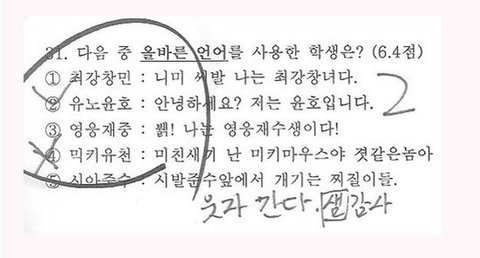 31. 다음 중 올바른 언어를 사용한 학생은? (6.4점)
① 최강창민 : 니미 씨발 나는 최강창녀다.
② 유노윤호 : 안녕하세요? 저는 윤호입니다. 2
③ 영웅재중 : 뷁! 나는 영웅재수생이다!
④ 믹키유천 : 미친새기 난 미키마우스야 곗같은놈아
⑤ 시아준수 : 시발준수앞에서 개기는 찌질이들.
웃자 간다. 샘감사